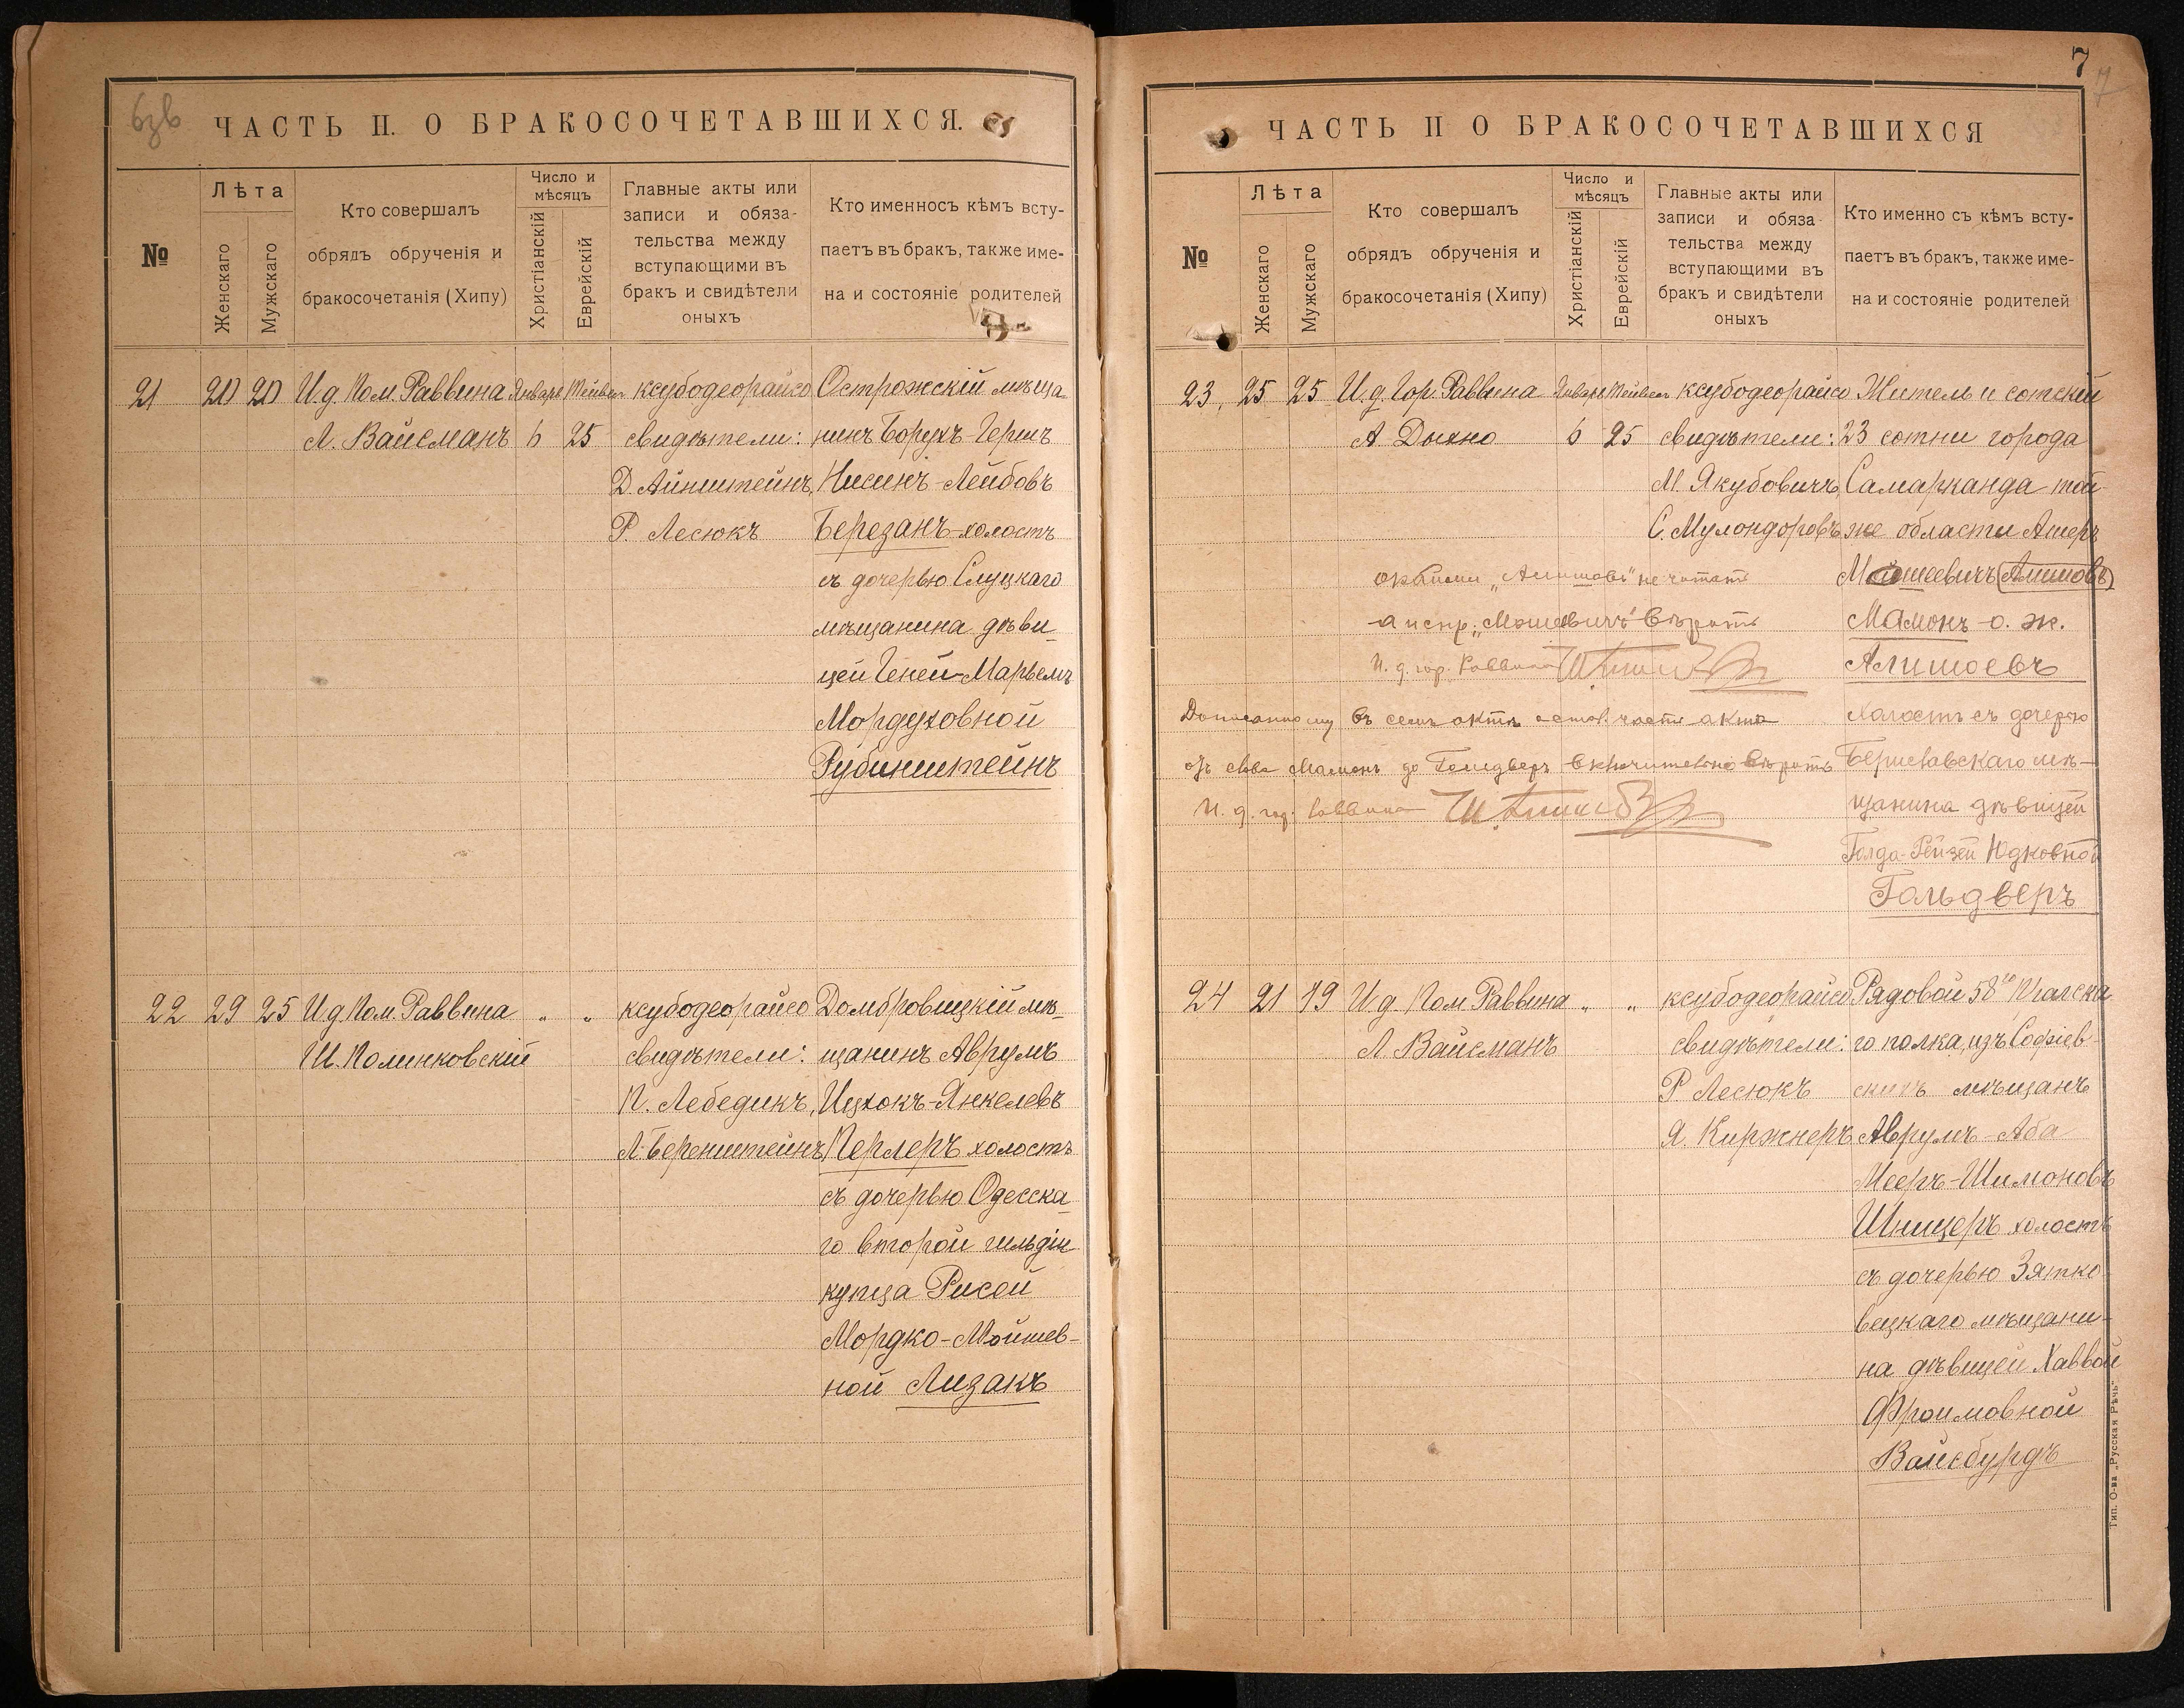 бзв
ЧАСТЬ II. О БРАКОСОЧЕТАВШИХСЯ.
№
Лѣта
Женскаго
Мужскаго
Кто совершалъ
обрядъ обрученія и
бракосочетанія (Хипу)
Число и
мѣсяцъ
Христіанскій
Еврейскій
Главные акты или
записи и обяза-
тельства между
вступающими въ
бракъ и свидѣтели
оныхъ
Кто именносъ кѣмъ всту-
паетъ въ бракъ, также име-
на и состояніе родителей
21 20 20 И.д. Пом. Раввина Январь Тейвес ксубодеорайсо Острожскій мѣща-
Л. Вайсманъ 6 25 свидѣтели: нинъ Борухъ-Гершъ
Д. Айнштейнъ, Нисинъ-Лейбовъ
Р. Лесюкъ Березанъ-холостъ
съ дочерью Слуцкаго
мѣщанина дѣви-
цей Геней-Марьемъ
Мордуховной
Рубинштейнъ
22 29 25 И д Пом. Раввина „ „ ксубодеорайсо Домбровицкій мѣ-
Ш. Полинковскій свидѣтели: щанинъ Аврумъ
П. Лебедикъ, Ицхокъ-Янкелевъ
Л. Беренштейнъ Перлеръ холостъ
съ дочерью Одесска-
го второй гильдіи
купца Рисей
Мордко-Мойшев-
ной Лизакъ
7
7
ЧАСТЬ II О БРАКОСОЧЕТАВШИХСЯ
№
Лѣта
Женскаго
Мужскаго
Кто совершалъ
обрядъ обрученія и
бракосочетанія (Хипу)
Число и
мѣсяцъ
Христіанскій
Еврейскій
Главные акты или
записи и обяза-
тельства между
вступающими въ
бракъ и свидѣтели
оныхъ
Кто именно съ кѣмъ всту-
паетъ въ бракъ, также име-
на и состояніе родителей
23, 25 25 И.д. Гор. Раввина Январь Тейвес ксубодеорайсо Житель и сотскій
А Дыхно 6 25 свидѣтели: 23 сотни города
М. Якубовичъ, Самарканда той
С. Мулондоровъ же области Ашеръ
„Алишовъ“ не читать Мошеевичъ (Алишовъ)
а испр. „Мошевичъ“ вѣрить Мамонъ о. ж.
И. д. гор. Раввина Алишоевъ
въ семъ актѣ части акта Холостъ съ дочерью
слова Мамонъ до Гольдверъ включительно вѣрить Бериславскаго мѣ-
И. д. гор. Раввина щанина дѣвицей
Голда-Рейзей Юдковной
Гольдверъ
24 21 19 И.д. Пом. Раввина „ „ ксубодеорайсо Рядовой 58го Прагска
Л. Вайсманъ свидѣтели: го полка, изъ Софіев-
Р Лесюкъ скихъ мѣщанъ
Я. Киржнеръ Аврумъ-Аба
Мееръ-Шимоновъ
Шницеръ холостъ
съ дочерью Зятко-
вецкаго мѣщани-
на дѣвицей Хаввой
Фроимовной
Вайсбурдъ
Тип. О-ва „Русская Рѣчь“.